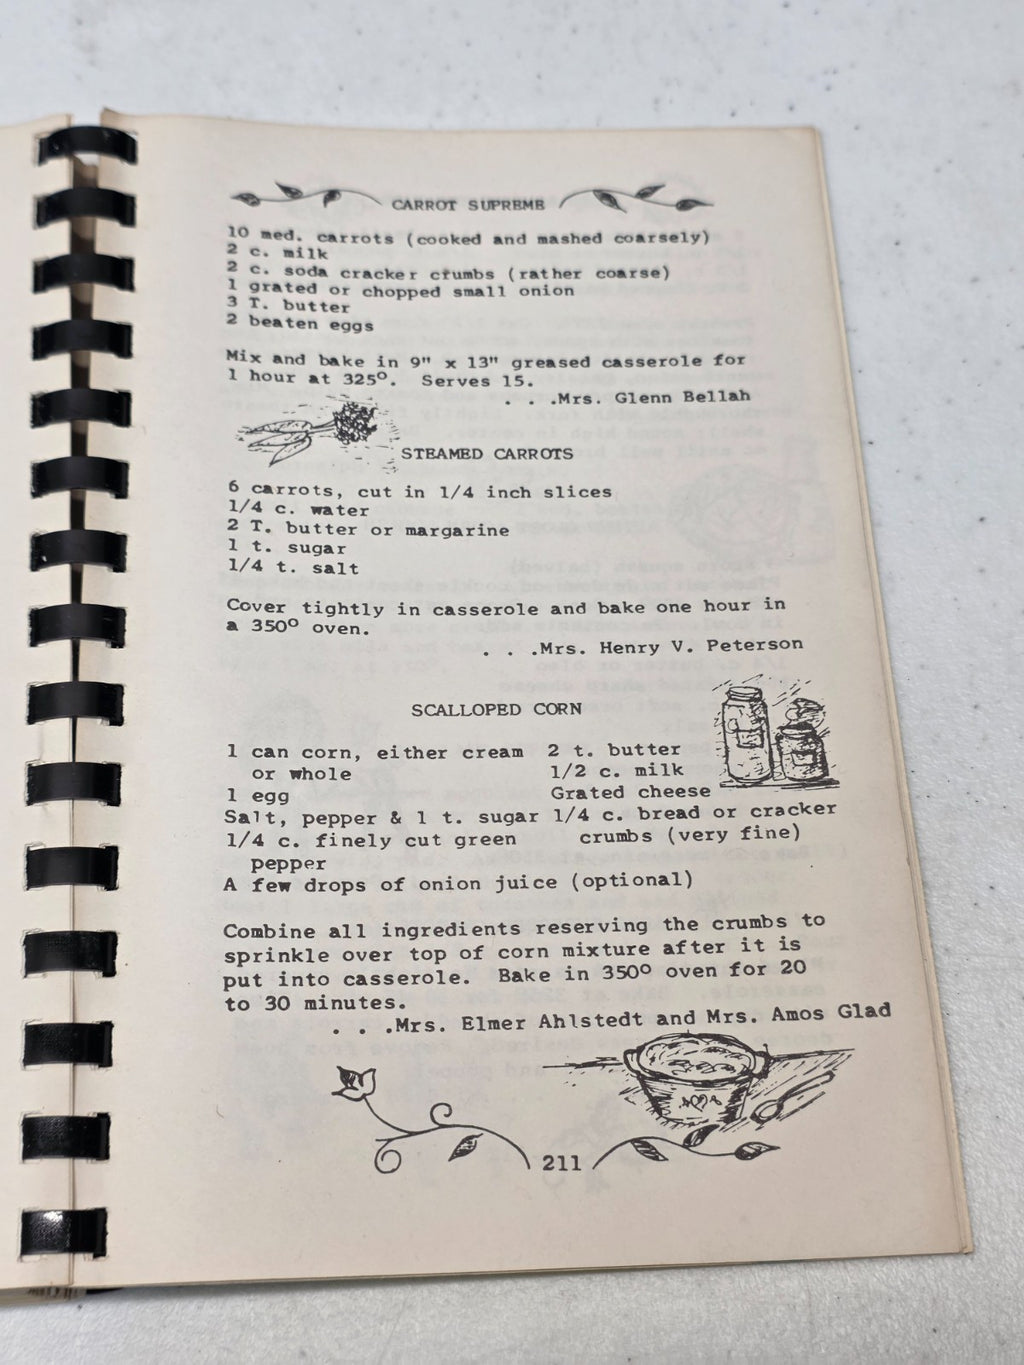 CARROT SUPREME
10 med. carrots (cooked and mashed coarsely)
2 c. milk
2 c. soda cracker crumbs (rather coarse)
1 grated or chopped small onion
3 T. butter
2 beaten eggs
Mix and bake in 9" x 13" greased casserole for
1 hour at 325º. Serves 15.
. . .Mrs. Glenn Bellah
STEAMED CARROTS
6 carrots, cut in 1/4 inch slices
1/4 c. water
2 T. butter or margarine
1 t. sugar
1/4 t. salt
Cover tightly in casserole and bake one hour in
a 350º oven.
. . .Mrs. Henry V. Peterson
SCALLOPED CORN
1 can corn, either cream 2 t. butter
or whole 1/2 c. milk
1 egg Grated cheese
Salt, pepper & 1 t. sugar 1/4 c. bread or cracker
1/4 c. finely cut green crumbs (very fine)
pepper
A few drops of onion juice (optional)
Combine all ingredients reserving the crumbs to
sprinkle over top of corn mixture after it is
put into casserole. Bake in 350º oven for 20
to 30 minutes.
. . .Mrs. Elmer Ahlstedt and Mrs. Amos Glad
211